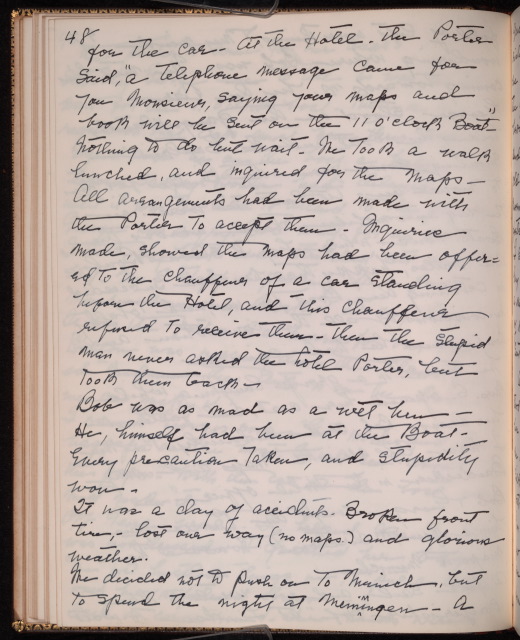 48
for the car - At the Hotel - the Porter
said, "a Telephone message came for
you Monsieur, saying your maps and
book will be sent on the 11 o'clock Boat"-
Nothing to do but wait - We Took a walk
lunched, and inquired for the maps -
All arrangements had been made with
the Porter To accept them - Inquiries
made, showed the maps had been offer=
ed To the chauffeur of a car standing
before the Hotel, and this chauffeur
refused To receive them - then the stupid
man never asked the hotel Porter, but
Took them back -
Bob was as mad as a wet hen -
He, himself had been at the Boat -
Every precaution Taken, and stupidity
won -
It was a day of accidents. Broken front
tire, - lost our way (no maps.) and glorious
weather.
We decided not to push on To Munich, but
To spend the night at Memmingen - A